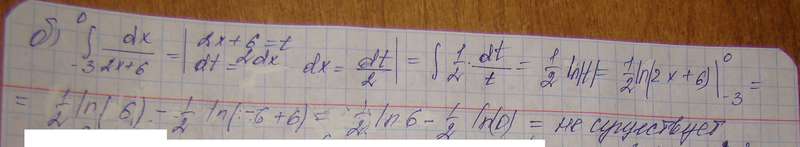 б) ∫₋₃⁰ dx/(2x+6) = | 2x+6=t dt=2dx dx=dt/2 | = ∫ 1/2 · dt/t = 1/2 ln|t| = 1/2 ln(2x+6) |₋₃⁰ =
= 1/2 ln(6) - 1/2 ln(-6+6) = 1/2 ln6 - 1/2 ln(0) = не существует